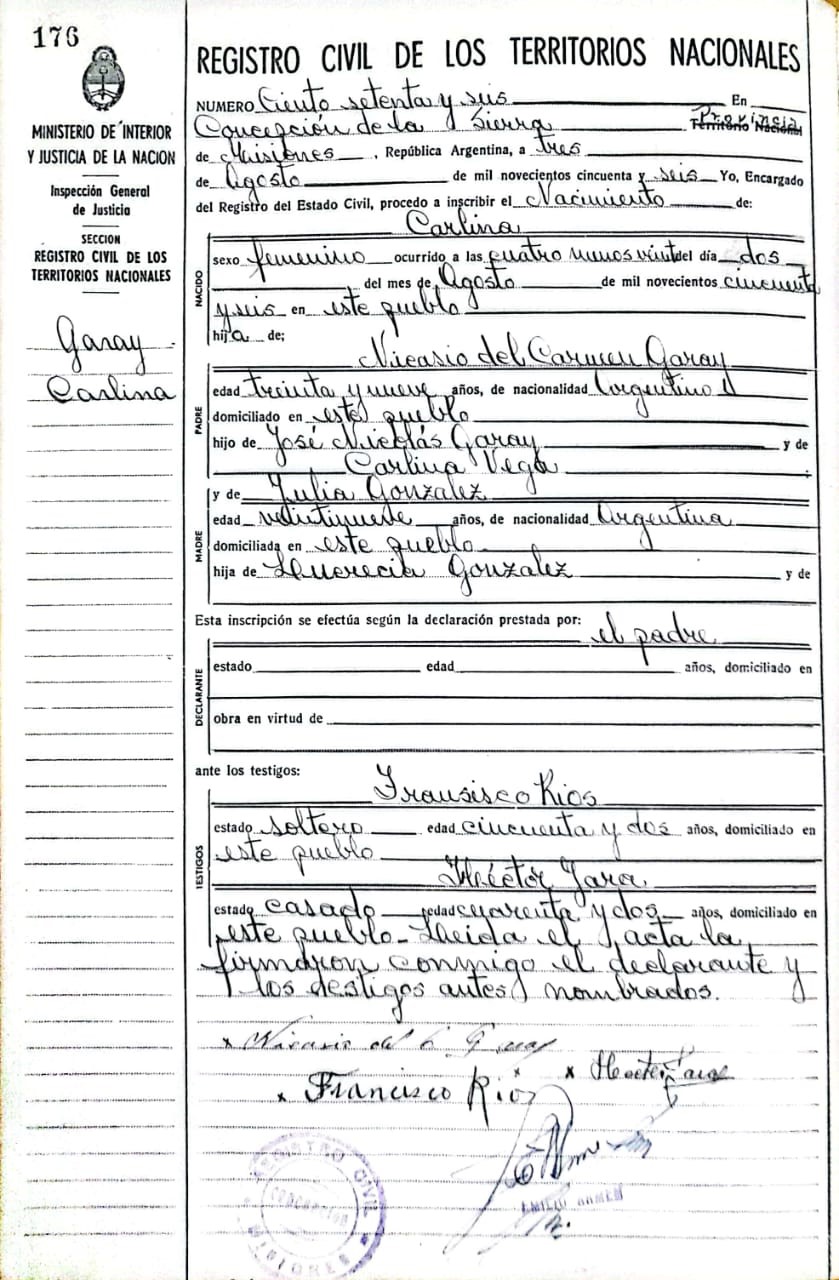 176
MINISTERIO DE INTERIOR
Y JUSTICIA DE LA NACION
Inspección General
de Justicia
SECCION
REGISTRO CIVIL DE LOS
TERRITORIOS NACIONALES
Garay
Carlina
REGISTRO CIVIL DE LOS TERRITORIOS NACIONALES
NUMERO Ciento setenta y seis En
Concepción de la Sierra Provincia Territorio Nacional
de Misiones, República Argentina, a tres
de Agosto de mil novecientos cincuenta y seis Yo, Encargado
del Registro del Estado Civil, procedo a inscribir el Nacimiento de:
Carlina
NACIDO
sexo femenino ocurrido a las cuatro menos veinte del día dos
del mes de Agosto de mil novecientos cincuenta
y seis en este pueblo
hija de;
Nicasio del Carmen Garay
PADRE
edad treinta y nueve años, de nacionalidad Argentino
domiciliado en este pueblo
hijo de José Nicolás Garay y de
Carlina Vega
y de Julia Gonzalez
MADRE
edad veintinueve años, de nacionalidad Argentina
domiciliada en este pueblo
hija de Gonzalez y de
Esta inscripción se efectúa según la declaración prestada por:
el padre
DECLARANTE
estado edad años, domiciliado en
obra en virtud de
ante los testigos:
Fransisco Rios
TESTIGOS
estado soltero edad cincuenta y dos años, domiciliado en
este pueblo
Héctor Jara
estado casado edad cuarenta y dos años, domiciliado en
este pueblo - Lleida el acta la
firmaron conmigo el declarante y
los testigos antes nombrados.
x Nicasio del C Garay
x Hector Jara
x Francisco Rios
REGISTRO CIVIL
CONCEPCION
MISIONES
EMILIO